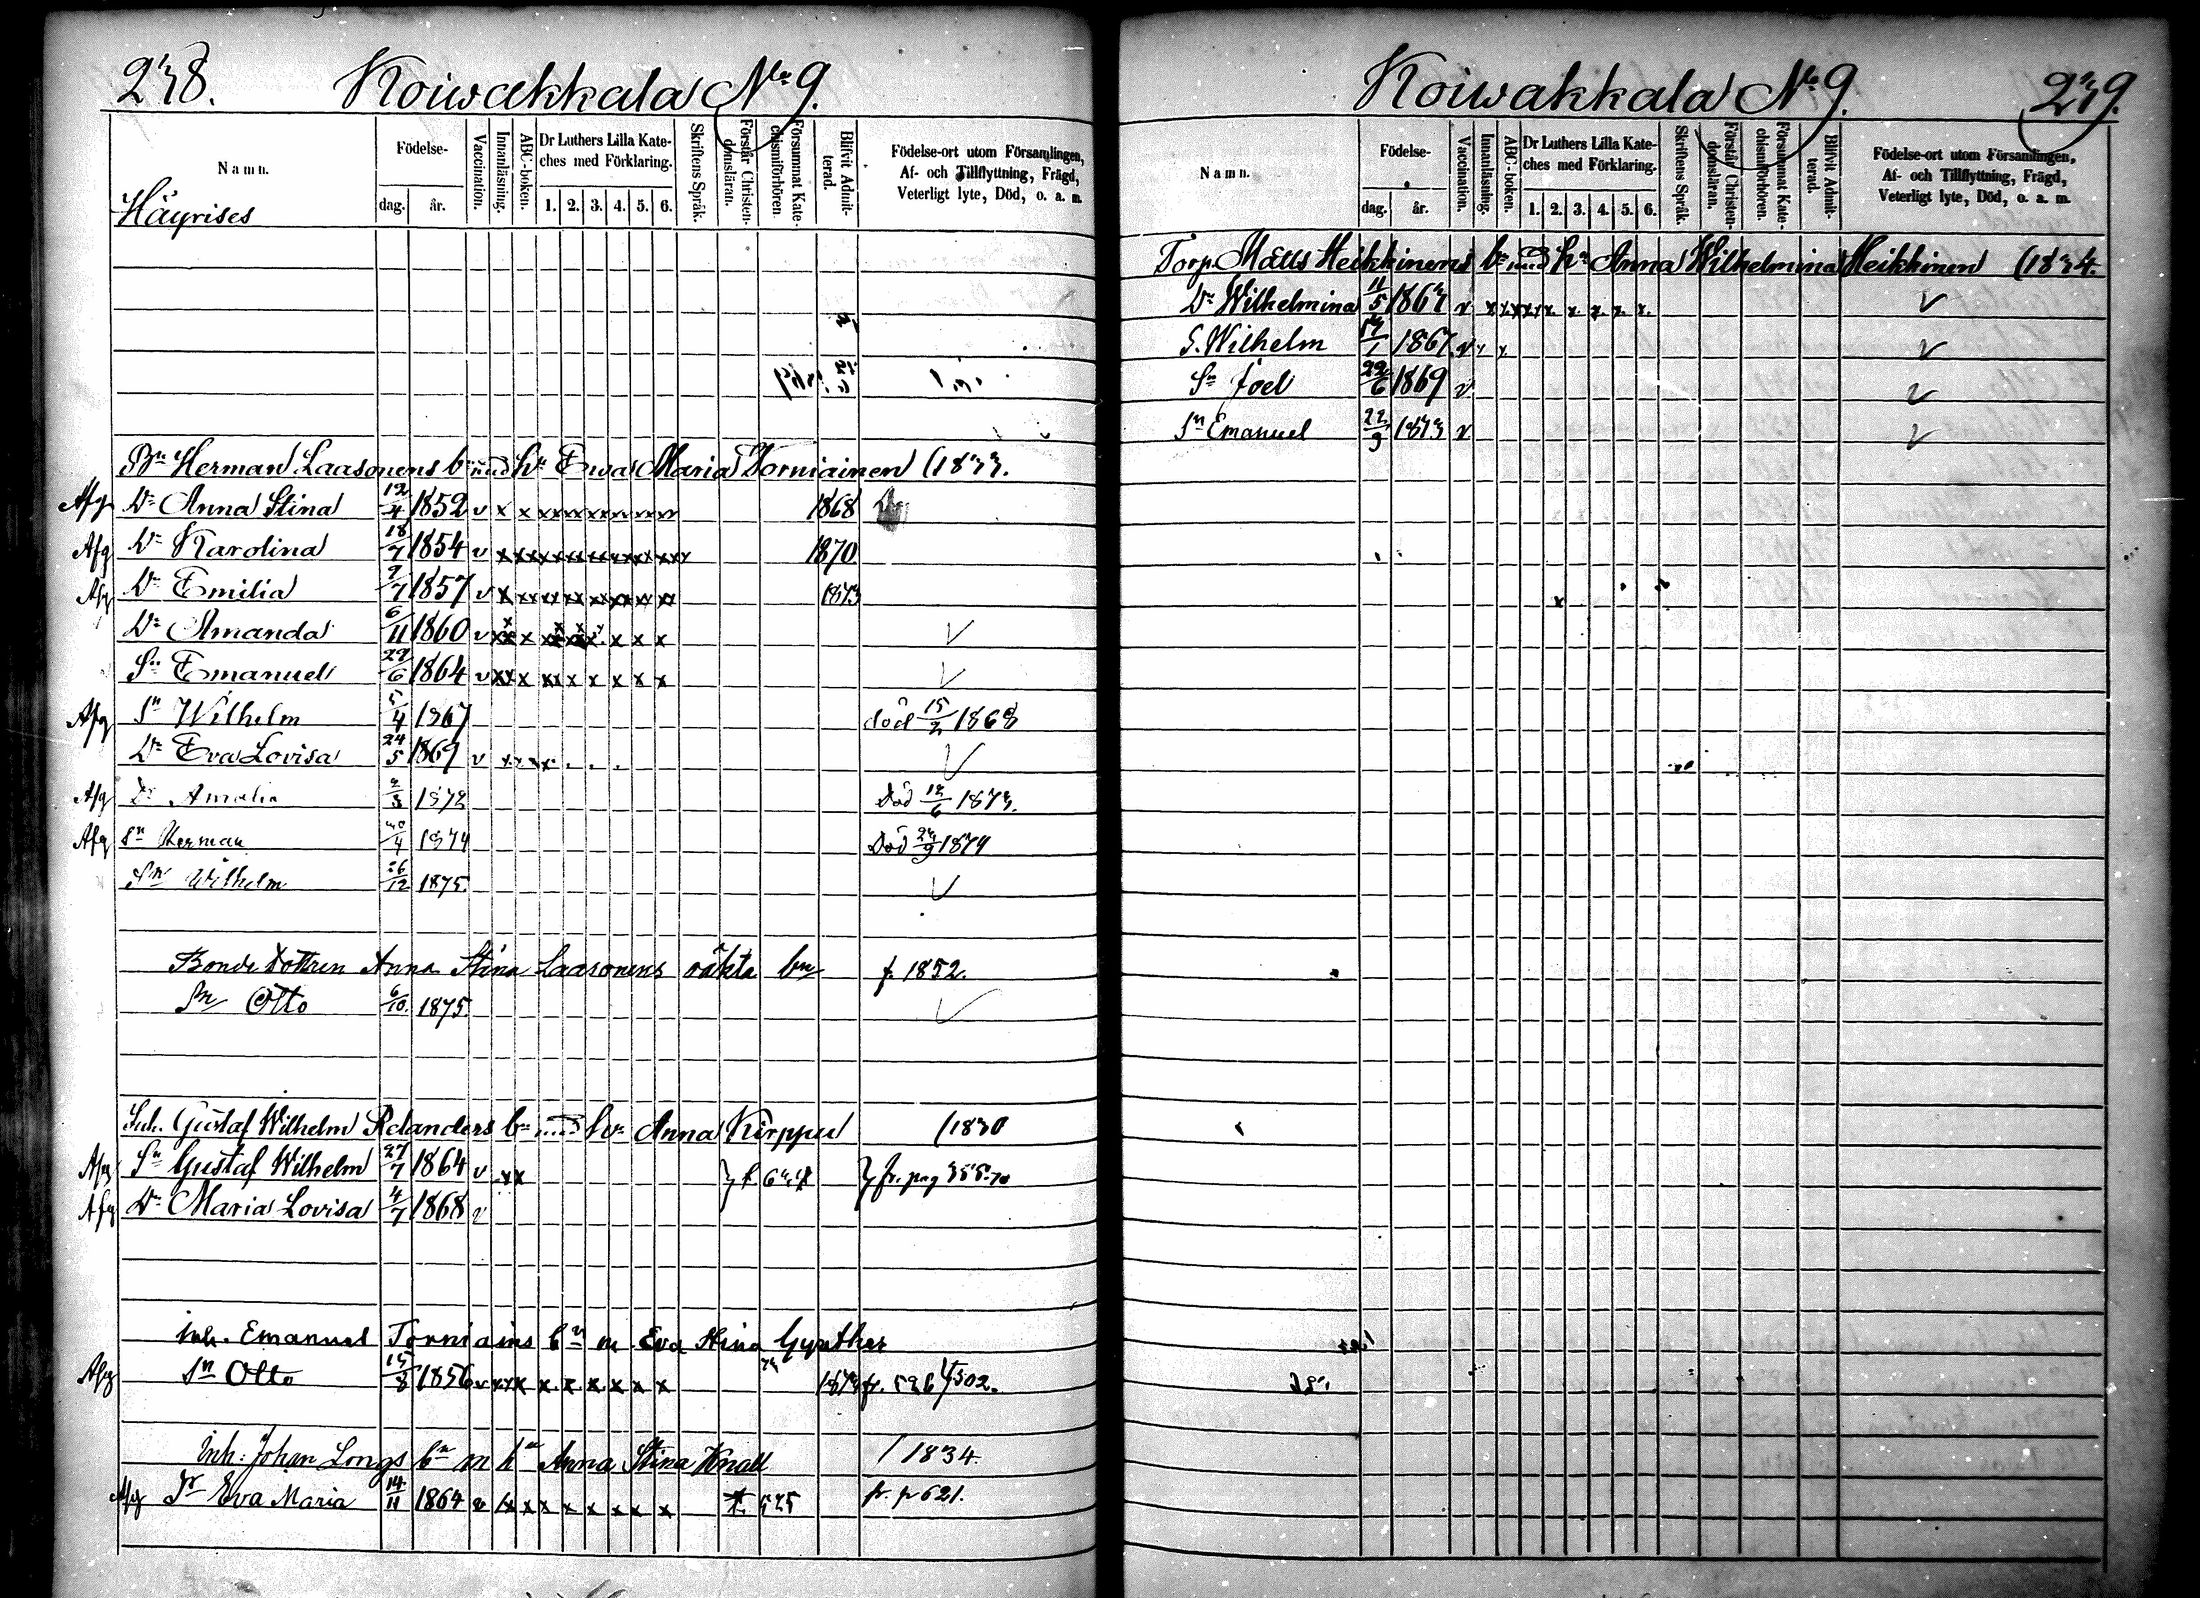 238. Koiwakkala No 9.
Namn.
Födelse-
dag. år.
Vaccination.
Innanläsning.
ABC-boken.
Dr Luthers Lilla Kateches med Förklaring.
1. 2. 3. 4. 5. 6.
Skriftens Språk.
Förstår Christendomsläran.
Försummat Katechismiförhören.
Blifvit Admitterad.
Födelse-ort utom Församlingen,
Af- och Tillflyttning, Frägd,
Veterligt lyte, Död, o. a. m.
Häyrises
Bn Herman Laasonens bn med hu Ewa Maria Torniainen (1833.
Afg Dr Anna Stina 12/4 1852 v x x 1868
Afg Dr Karolina 18/7 1854 v 1870.
Afg Dr Emilia 9/7 1857 v 1873
Dr Amanda 6/11 1860 v
Sn Emanuel 29/6 1864 v
Afg Sn Wilhelm 5/4 1867 död 15/2 1868
Dr Eva Lovisa 24/5 1869 v
Afg Dr Amalia 2/3 1872 Död 12/6 1873.
Afg Sn Herman 30/4 1874 Död 23/9 1874
Sn Wilhelm 26/12 1875.
Bonde dottren Anna Stina Laasonens oäkta bn f. 1852.
Sn Otto 6/10. 1875
Inh. Gustaf Wilhelm Relanders bn med hu Anna Kirppu (1830
Afg Sn Gustaf Wilhelm 27/7 1864 v x x
Afg Dr Maria Lovisa 4/7 1868 v
inh. Emanuel Torniains bn m Eva Stina
Afg Sn Otto 15/8 1856 v 1873 fr. 502.
Inh: Johan Longs bn m hu Anna Stina Knall / 1834.
Afg Dr Eva Maria 14/11 1864 v 525 fr. p 621.
Koiwakkala No 9. 239.
Namn.
Födelse-
dag. år.
Vaccination.
Innanläsning.
ABC-boken.
Dr Luthers Lilla Kateches med Förklaring.
1. 2. 3. 4. 5. 6.
Skriftens Språk.
Förstår Christendomsläran.
Försummat Katechismiförhören.
Blifvit Admitterad.
Födelse-ort utom Församlingen,
Af- och Tillflyttning, Frägd,
Veterligt lyte, Död, o. a. m.
Torp. Matts Heikkinens bn med hu Anna Wilhelmina Heikkinen (1834.
Dr Wilhelmina 11/5 1863 v
S. Wilhelm 1867 v
Sn Joel 29/6 1869 v
Sn Emanuel 22/9 1873 v